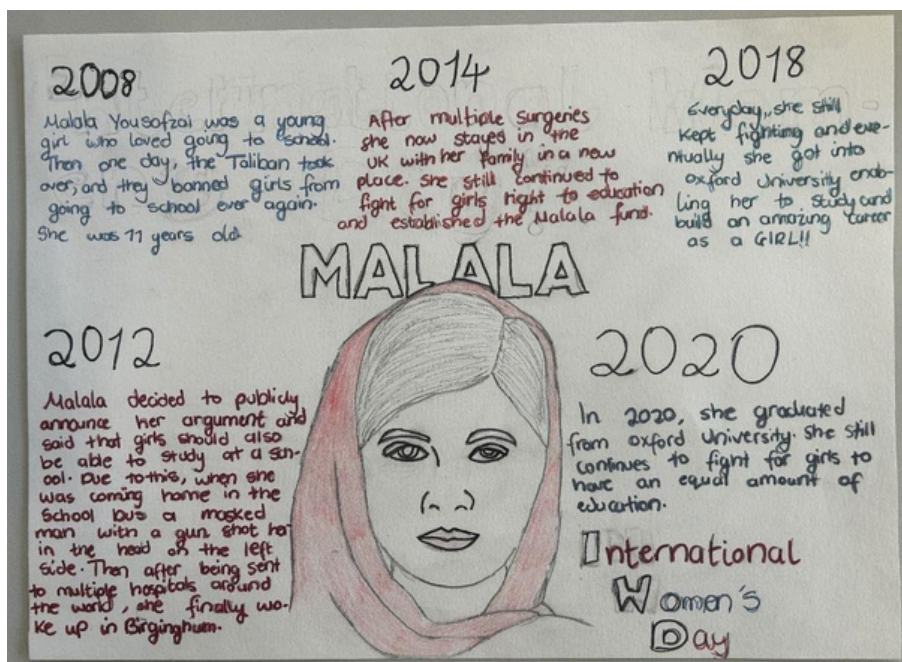 2008
Malala Yousofzai was a young
girl who loved going to school.
Then one day, the Taliban took
over, and they banned girls from
going to school ever again.
She was 11 years old
2014
After multiple surgeries
she now stayed in the
UK with her family in a new
place. She still continued to
fight for girls right to education
and established the Malala fund.
2018
Everyday, she still
kept fighting and eve-
ntually she got into
oxford University enab-
ling her to study and
build an amazing career
as a GIRL!!
MALALA
2012
Malala decided to publicly
announce her argument and
said that girls should also
be able to study at a sch-
ool. Due to this, when she
was coming home in the
School bus a masked
man with a gun shot her
in the head on the left
side. Then after being sent
to multiple hospitals around
the world, she finally wo-
ke up in Birginghum.
2020
In 2020, she graduated
from oxford University. She still
continues to fight for girls to
have an equal amount of
education.
International
Women's
Day